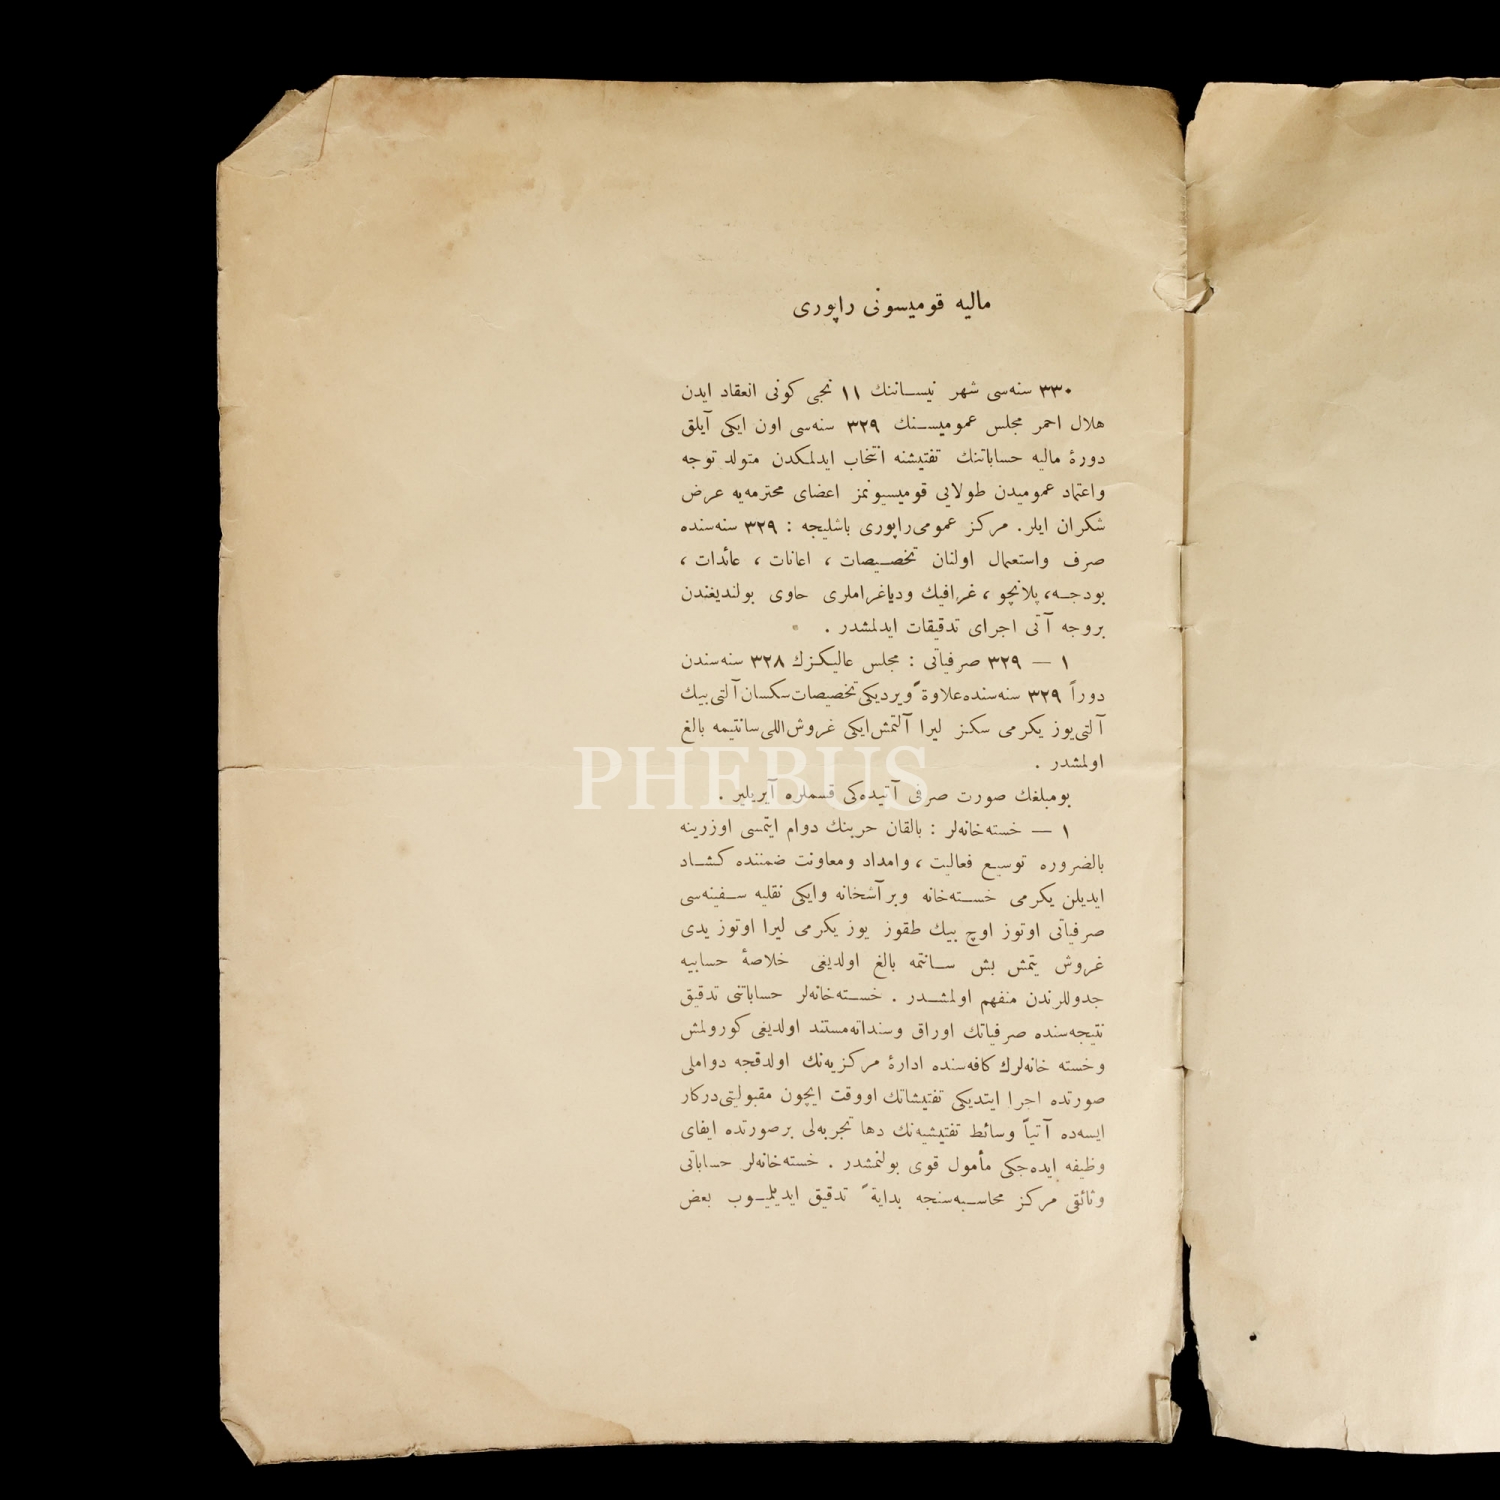 مالیه قومیسونی راپوری
۳۳۰ سنه‌سی شهر نیساننك ۱۱ نجی كونی انعقاد ایدن
هلال احمر مجلس عمومیسنك ۳۲۹ سنه‌سی اون ایكی آیلق
دورهٔ مالیه حساباتنك تفتیشنه انتخاب ایدلمكدن متولد توجه
واعتماد عمومیدن طولایی قومیسیونمز اعضای محترمه‌یه عرض
شكران ایلر . مركز عمومی راپوری باشلیجه : ۳۲۹ سنه‌سنده
صرف واستعمال اولنان تخصیصات ، اعانات ، عائدات ،
بودجه ، پلانچو ، غرافیك ودیاغراملری حاوی بولندیغندن
بروجه آتی اجرای تدقیقات ایدلمشدر .
۱ — ۳۲۹ صرفیاتی : مجلس عالیكزك ۳۲۸ سنه‌سندن
دوراً ۳۲۹ سنه‌سنده علاوةً ویردیكی تخصیصات سكسان آلتی بیك
آلتی یوز یكرمی سكز لیرا آلتمش ایكی غروش اللی سانتیمه بالغ
اولمشدر .
بومبلغك صورت صرفی آتیده‌كی قسملره آیریلیر .
۱ — خسته‌خانه‌لر : بالقان حربنك دوام ایتمسی اوزرینه
بالضروره توسیع فعالیت ، وامداد ومعاونت ضمننده كشاد
ایدیلن یكرمی خسته‌خانه وبر آشخانه وایكی نقلیه سفینه‌سی
صرفیاتی اوتوز اوچ بیك طقوز یوز یكرمی لیرا اوتوز یدی
غروش یتمش بش سانتمه بالغ اولدیغی خلاصهٔ حسابیه
جدوللرندن منفهم اولمشدر . خسته‌خانه‌لر حساباتنی تدقیق
نتیجه‌سنده صرفیاتك اوراق وسنداته مستند اولدیغی كورولمش
وخسته خانه‌لرك كافه‌سنده ادارهٔ مركزیه‌نك اولدقجه دواملی
صورتده اجرا ایتدیكی تفتیشاتك اووقت ایچون مقبولیتی دركار
ایسه‌ده آتیاً وسائط تفتیشیه‌نك دها تجربه‌لی برصورتده ایفای
وظیفه ایده‌جكی مأمول قوی بولنمشدر . خسته‌خانه‌لر حساباتی
وثائقی مركز محاسبه‌سنجه بدایةً تدقیق ایدیلمیوب بعض
PHEBUS